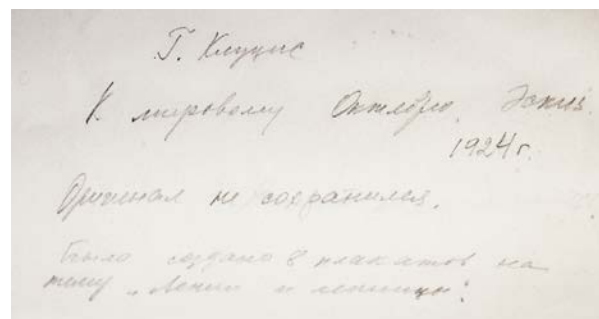 Г. Клуцис
К мировому Октябрю. Эскиз.
1924 г.
Оригинал не сохранился.
Было создано 8 плакатов на
тему „Ленин и